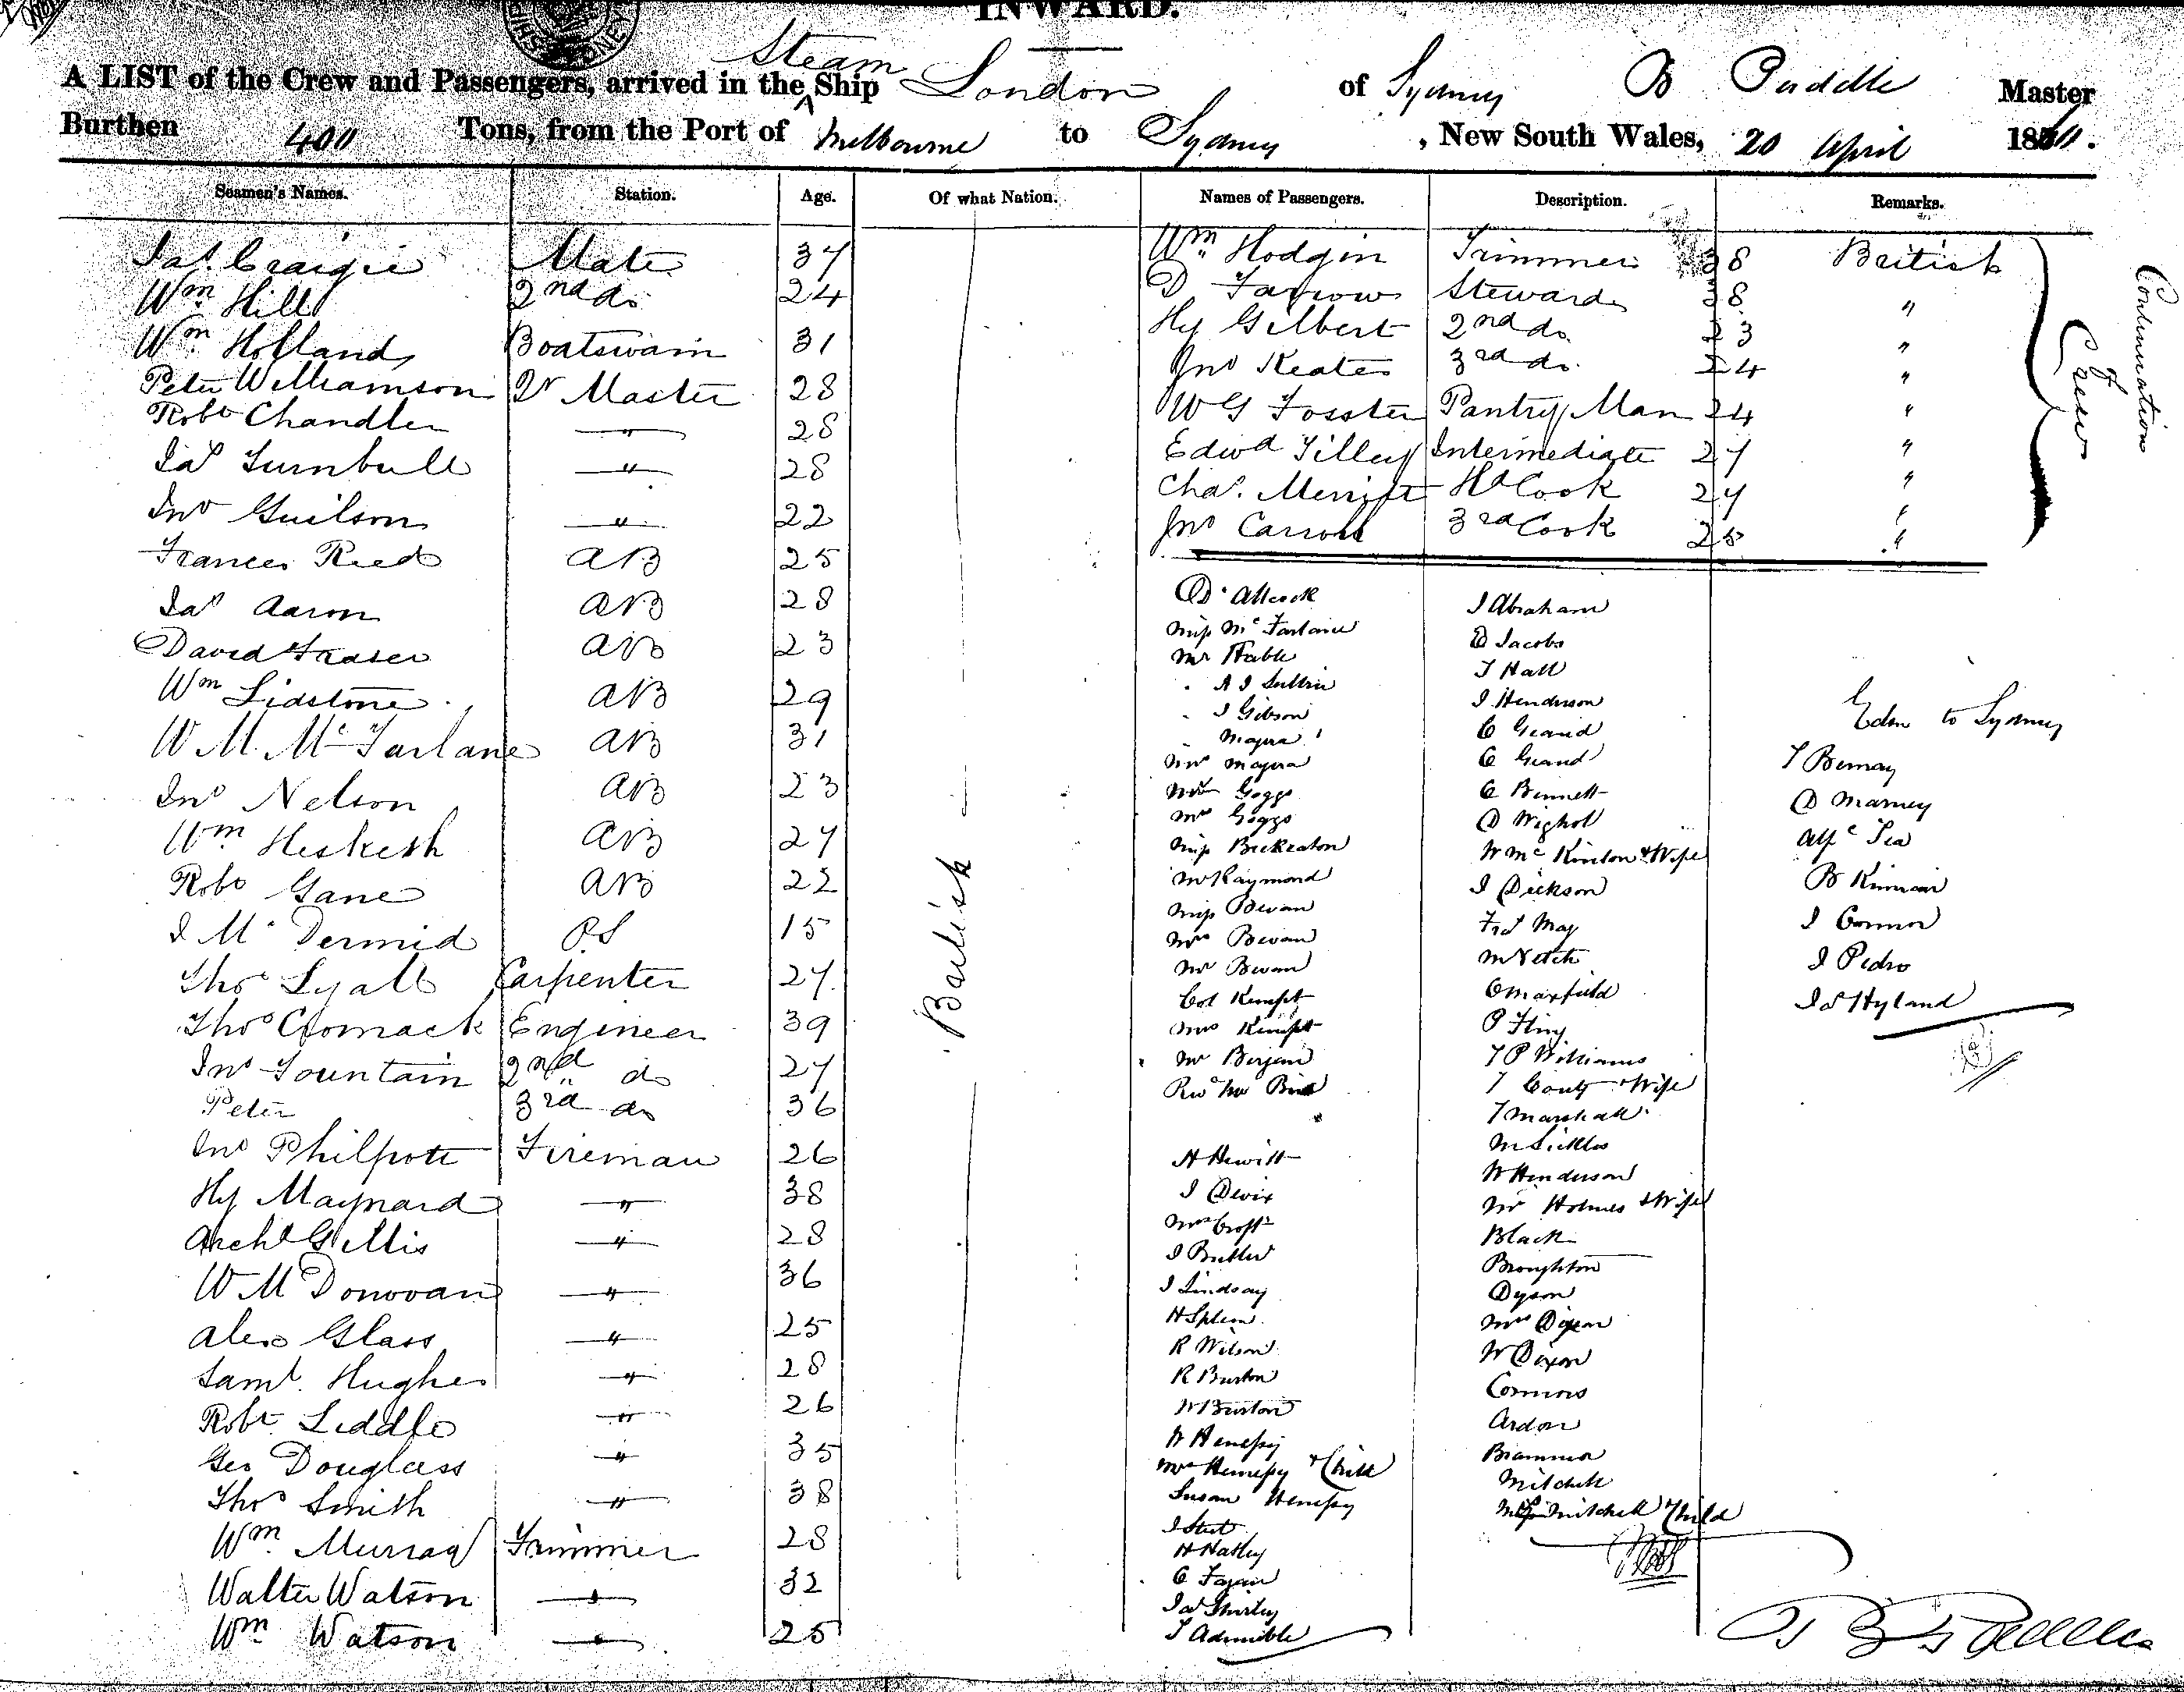 INWARD.
Steam
A LIST of the Crew and Passengers, arrived in the ^ Ship London of Sydney B Paddle Master
Burthen 400 Tons, from the Port of Melbourne to Sydney, New South Wales, 20 April 18
Seamen's Names. Station. Age. Of what Nation. Names of Passengers. Description. Remarks.
Jas. Craigie Mate 37
Wm Hill 2nd do 24
Wm Holland Boatswain 31
Peter Williamson Qr Master 28
Robt Chandler " 28
Jas Turnbull " 28
Jno Guilson " 22
Frances Reed AB 25
Jas Aaron AB 28
David Fraser AB 23
Wm Lidstone AB 29
W M. McFarlane AB 31
Jno Nelson AB 23
Wm Hesketh AB 27
Robt Gane AB 22
J Mc Dermid OS 15
Thos Lyall Carpenter 27
Thos Comack Engineer 39
Jno Fountain 2nd do 27
Peter 3rd do 36
Jno Philpott Fireman 26
Hy Maynard " 38
Archd Gillis " 28
W M Donovan " 36
Alex Glass " 25
Saml. Hughes " 28
Robt Liddle " 26
Geo Douglass " 35
Thos Smith " 38
Wm Murray Trimmer 28
Walter Watson " 32
Wm Watson " 25
British
Wm Hodgin Trimmer 38 British
D Farrow Steward 38 "
Hy Gilbert 2nd do 23 "
Jno Keates 3rd do. 24 "
W G Fosster Pantry Man 24 "
Edwd Tilley Intermediate 27 "
Chas. Merritt Hd Cook 27 "
Jno Carroll 3rd Cook 25 "
Continuation of Crew
D. Allcock
Miss McFarlane
Mr Hable
" J Gibson
" Magra
Mrs Magra
Mr Goggs
Mrs Goggs
Miss
Mr Raymond
Miss Bevan
Mrs Bevan
Mr Bevan
Col Kempt
Mrs Kempt
Mr
Revd Mr
H Hewitt
J Devix
Mrs Croft
J Butler
J Lindsay
H
R Wilson
R Burton
W Burton
W Henessy
Mrs Henessy & Child
Susan Henessy
J
H Hatley
C
Jas Shirley
J
J Abraham
D Jacobs
T Hall
J Henderson
C
C
C Bennett
D
W McKinlon & Wife
J Dickson
Fred May
M Veitch
C Maxfield
P
T P Williams
T & Wife
T Marshall
M Sickles
W Henderson
Mr Holmes & Wife
Black
Broughton
Dyson
Mrs
W Dixon
Connors
Ardon
Mitchell
Mrs Mitchell & Child
Eden to Sydney
T
D Marney
B
J Connor
J Pedro
Jas Hyland